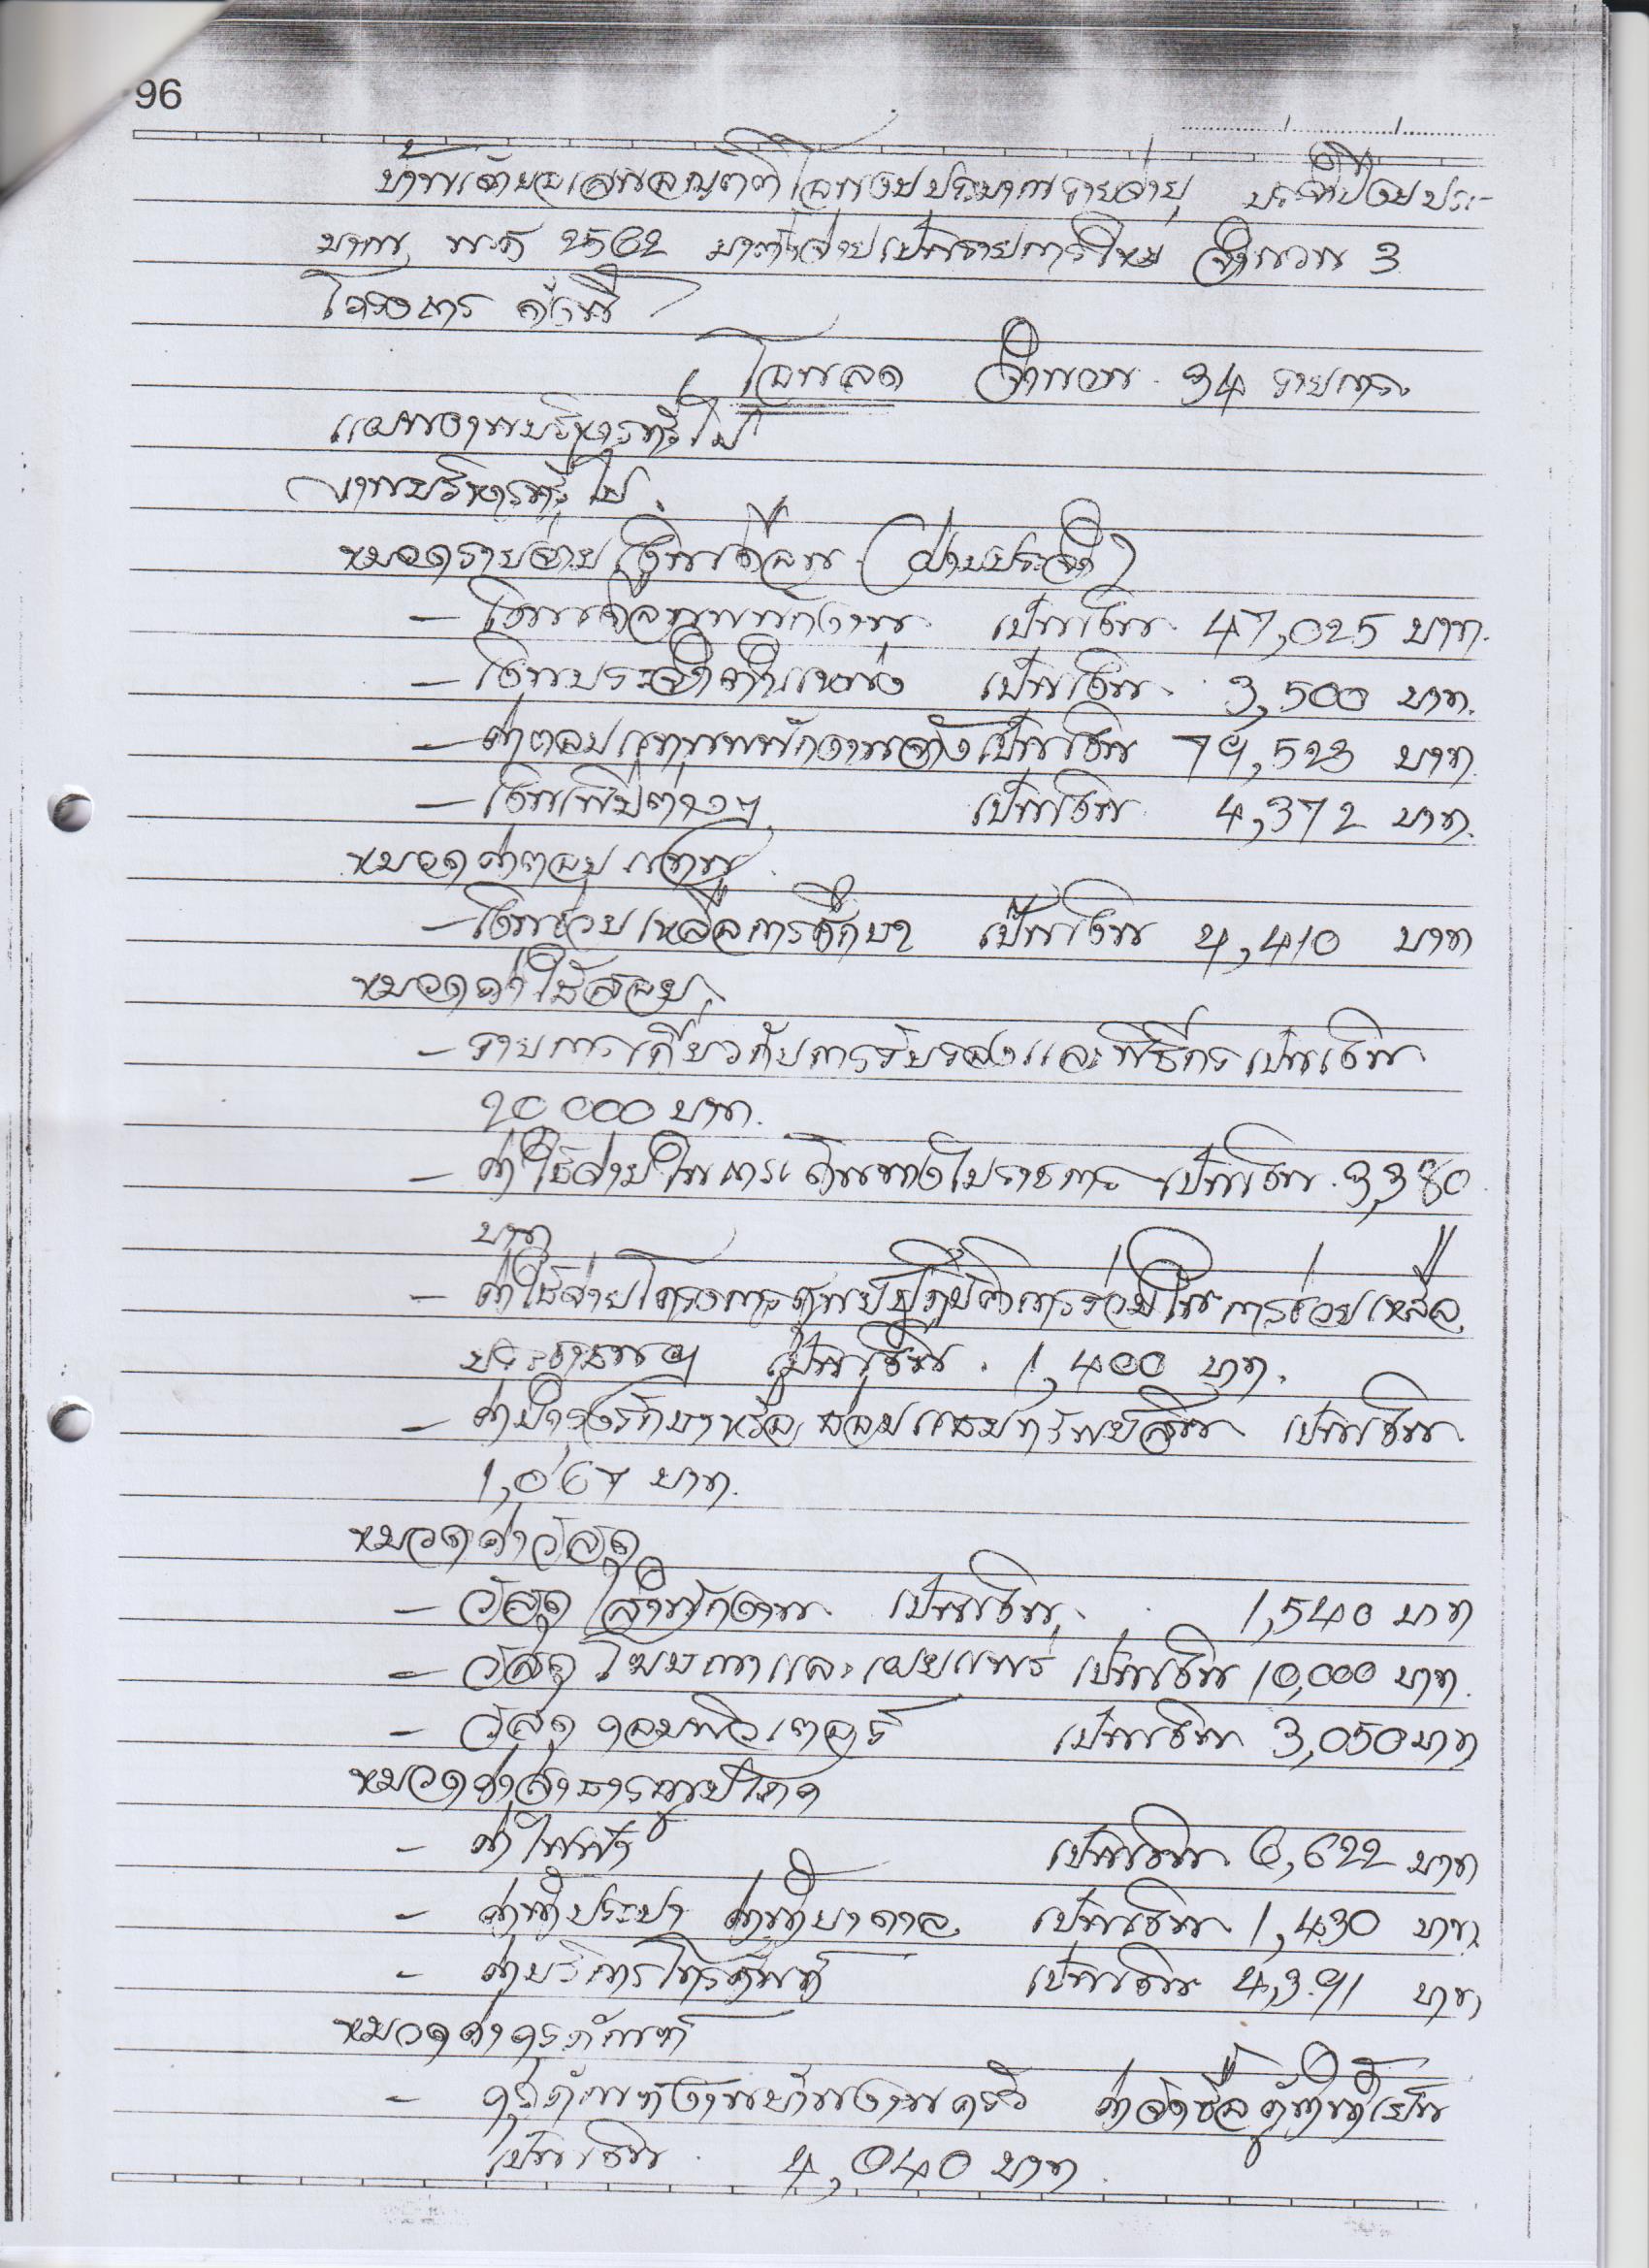 96
ข้าพเจ้าขอเสนอญัตติโอนงบประมาณรายจ่าย ประจำปีงบประ-
มาณ พ.ศ 2562 มาตั้งจ่ายเป็นรายการใหม่ จำนวน 3
โครงการ ดังนี้
โอนลด จำนวน 34 รายการ
แผนงานบริหารทั่วไป
งานบริหารทั่วไป
หมวดรายจ่าย เงินเดือน (ฝ่ายประจำ)
- เงินเดือนพนักงาน เป็นเงิน 47,025 บาท
- เงินประจำตำแหน่ง เป็นเงิน 3,500 บาท
- ค่าตอบแทนพนักงานจ้าง เป็นเงิน 79,523 บาท
- เงินเพิ่มต่างๆ เป็นเงิน 4,372 บาท
หมวดค่าตอบแทน
- เงินช่วยเหลือการศึกษา เป็นเงิน 4,410 บาท
หมวดค่าใช้สอย
- รายการเกี่ยวกับการรับรองและพิธีการ เป็นเงิน
20 000 บาท
- ค่าใช้จ่ายในการเดินทางไปราชการ เป็นเงิน 3,380
บาท
- ค่าใช้จ่ายโครงการศูนย์ปฏิบัติการร่วมในการช่วยเหลือ
ประชาชนฯ เป็นเงิน 1,400 บาท
- ค่าบำรุงรักษาหรือซ่อมแซมทรัพย์สิน เป็นเงิน
1,067 บาท
หมวดค่าวัสดุ
- วัสดุสำนักงาน เป็นเงิน 1,540 บาท
- วัสดุโฆษณาและเผยแพร่ เป็นเงิน 10,000 บาท
- วัสดุคอมพิวเตอร์ เป็นเงิน 3,050 บาท
หมวดค่าสาธารณูปโภค
- ค่าไฟฟ้า เป็นเงิน 6,622 บาท
- ค่าน้ำประปา ค่าน้ำบาดาล เป็นเงิน 1,430 บาท
- ค่าบริการโทรศัพท์ เป็นเงิน 4,391 บาท
หมวดค่าครุภัณฑ์
- ครุภัณฑ์งานบ้านงานครัว ค่าจัดซื้อตู้ทำน้ำเย็น
เป็นเงิน 4,040 บาท